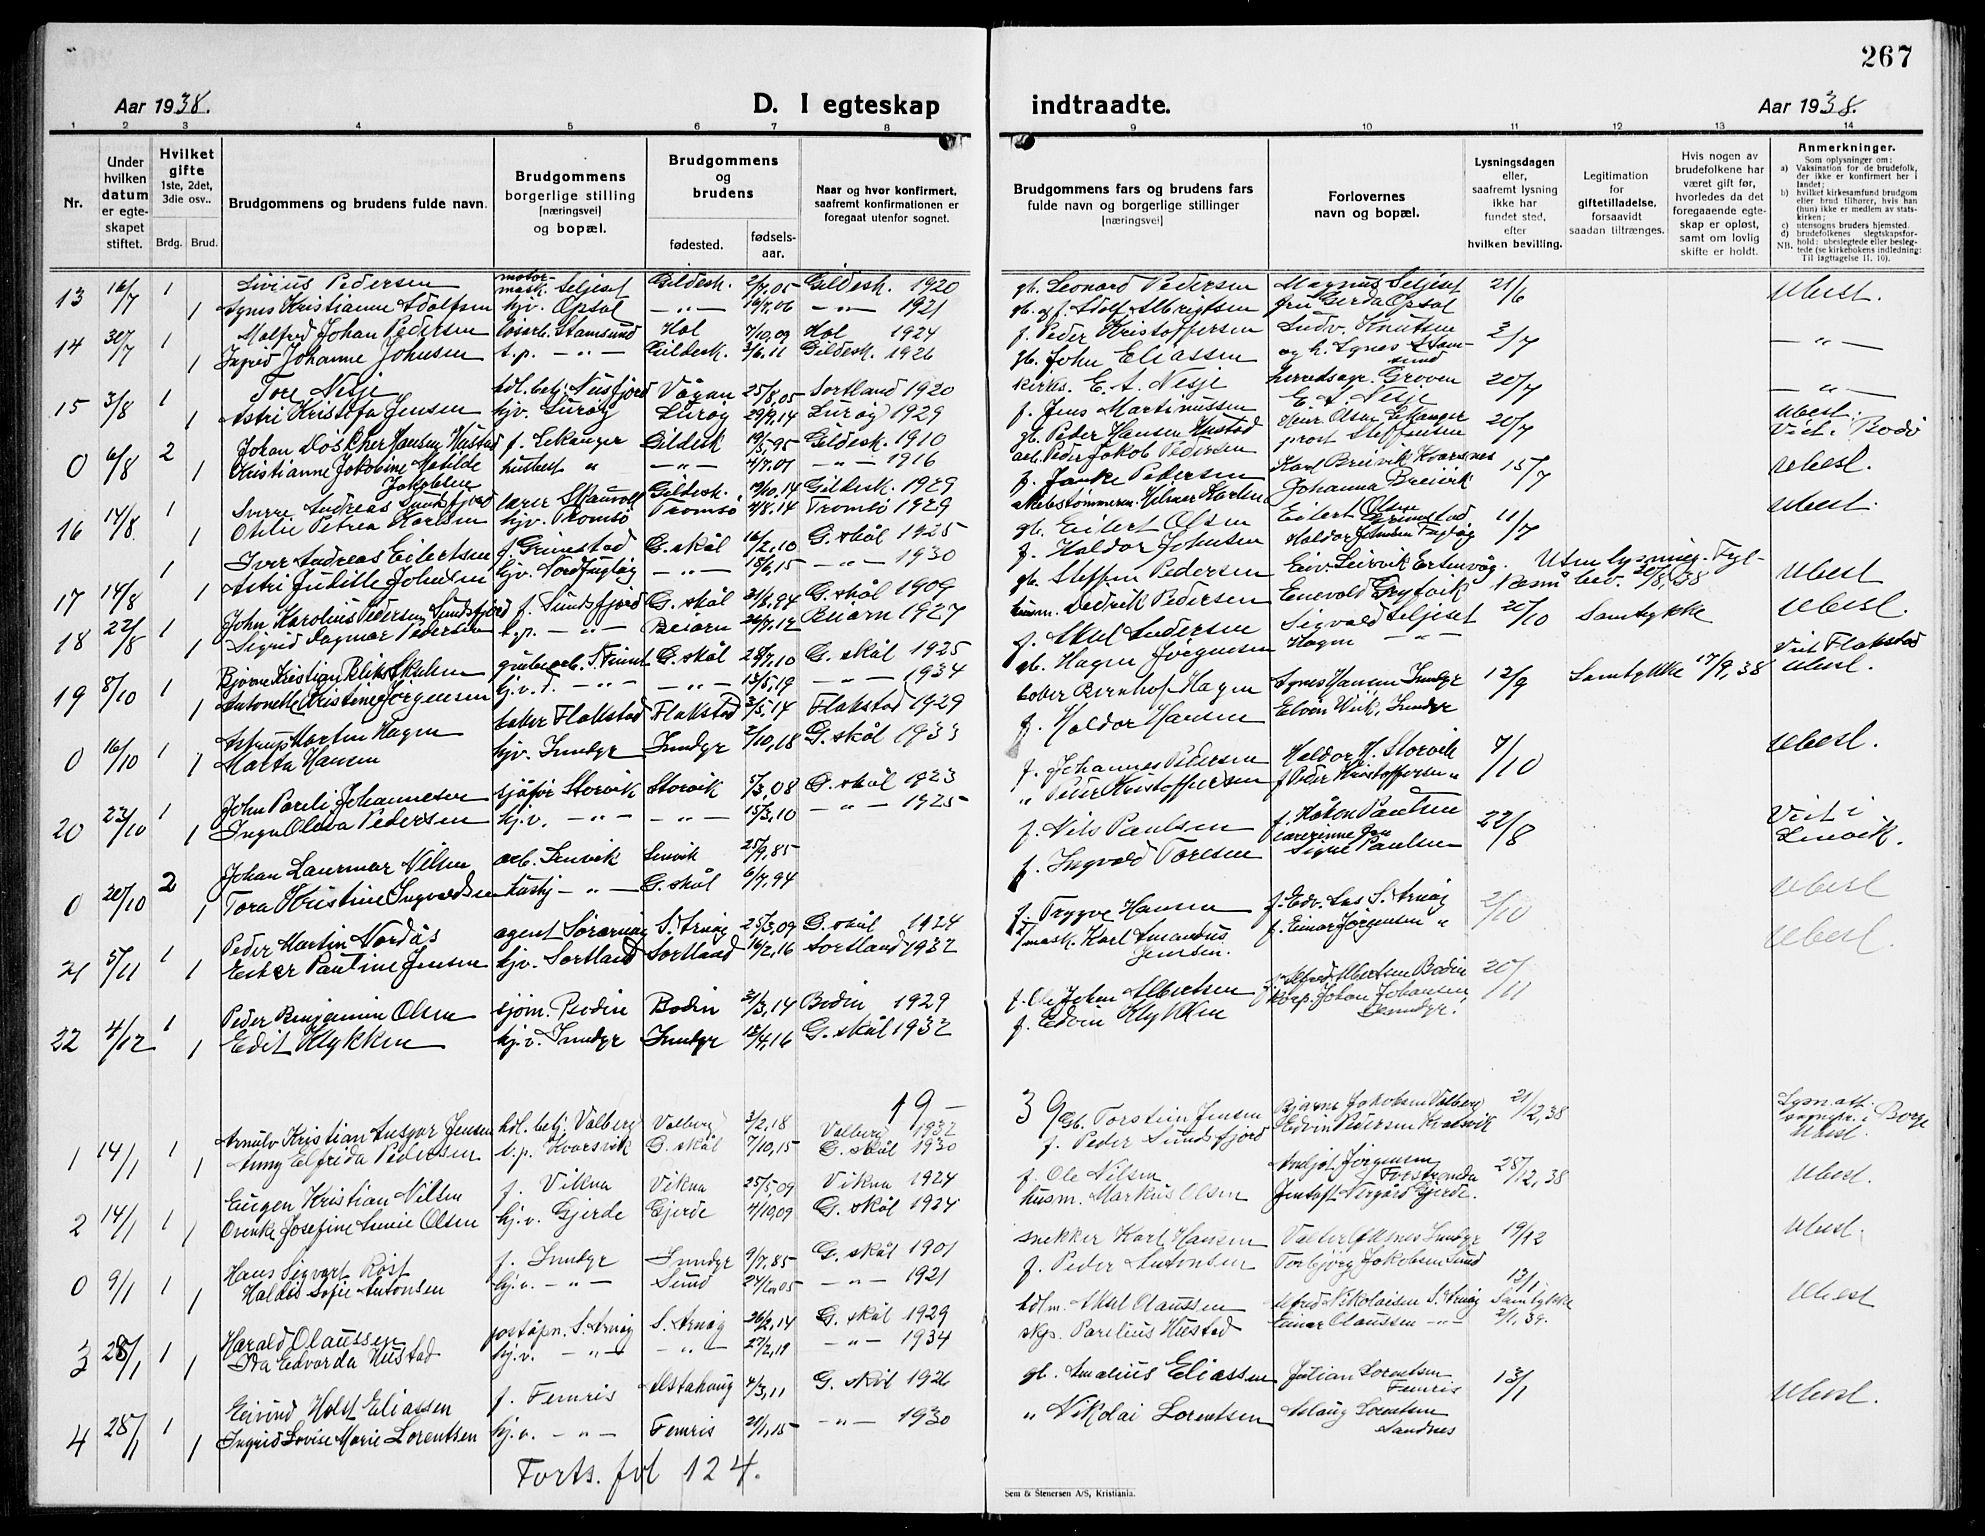 267
Aar 1938.
D. I egteskap
indtraadte.
Aar 1938.
1 2 3 4 5 6 7 8 9 10 11 12 13 14
Nr.
Under hvilken datum er egteskapet stiftet.
Hvilket gifte
1ste, 2det, 3die osv..
Brdg. Brud.
Brudgommens og brudens fulde navn.
Brudgommens borgerlige stilling
[næringsvei]
og bopæl.
Brudgommens og brudens
fødested.
fødsels-aar.
Naar og hvor konfirmert, saafremt konfirmationen er foregaat utenfor sognet.
Brudgommens fars og brudens fars fulde navn og borgerlige stillinger
[næringsvei]
Forlovernes navn og bopæl.
Lysningsdagen eller, saafremt lysning ikke har fundet sted, efter hvilken bevilling.
Legitimation for giftetilladelse, forsaavidt saadan tiltrænges.
Hvis nogen av brudefolkene har været gift før, hvorledes da det foregaaende egteskap er opløst, samt om lovlig skifte er holdt.
Anmerkninger.
Som oplysninger om:
a) Vaksination for de brudefolk, der ikke er konfirmert her i landet;
b) hvilket kirkesamfund brudgom eller brud tilhører, hvis han (hun) ikke er medlem av statskirken;
c) utensogns bruders hjemsted.
d) brudefolkenes slegtskapsforhold: ubeslegtede eller beslegtede (se kirkebokens indledning:
NB. Til Iagttagelse II. 10).
13 16/7 1 Livius Pedersen motormask. Seljeset Gildesk. 2/7,05 Gildesk. 1920 gb. Leonard Pedersen Magnus Seljeset 21/6 Ubesl.
1 Agnes Kristianne Adolfsen hjv. Opsal -"- 16/7,06 -"- 1921 gb. og f. Adolf Albrigtsen fru Gerda Opsal
14 30/7 1 Malfred Johan Pedersen løsarb. Stamsund Hol 7/10,09 Hol 1924 f. Peder Kristoffersen Ludv. Knutsen 2/7 -"-
1 Ingrid Johanne Johnsen t.p. -"- Gildesk. 3/6,11 Gildesk. 1926 gb. John Eliassen og h. Agnes Stamsund
15 3/8 1 Tore Nesje hdl.betj. Nusfjord Vågan 25/8,05 Sortland 1920 kirkes. E. A. Nesje herredsagr. Groven 20/7 -"-
1 Astri Kristofa Jensen hjv. Lurøy Lurøy 29/9,14 Lurøy 1929 f. Jens Martinussen E. A. Nesje
0 6/8 2 Johan Hansen Hustad f. Gildesk 19/5,95 Gildesk. 1910 gb. Peder Hansen Hustad prost Steffensen 20/7 Ubesl. Viet i Bodø
1 Kristianne Jakobine Matilde Jakobsen -"- 4/7,01 -"- 1916 arb. Peder Jakob Pedersen
16 14/8 1 Sverre Andreas Sundsfjord lærer Gildesk. 19/10,14 Gildesk. 1929 f. Janke Pedersen Karl Breivik Kvarsnes 15/7 Ubesl.
1 Otilie Petrea Karlsen hjv. Tromsø Tromsø 2/8,14 Tromsø 1929 skibstømmerm. Hilmar Karlsen Johanna Breivik
17 14/8 1 Iver Andreas Eilertsen f. Grimstad G.skål 16/2,10 G.skål 1925 gb. Eilert Olsen Eilert Olsen Grimstad 11/7 Ubesl.
1 Astri Julitte Johnsen hjv. Nordfugløy -"- 15/6,15 -"- 1930 f. Haldor Johnsen Haldor Johnsen Fugløy
18 22/8 1 John Karolius Pedersen Sundsfjord f. Sundsfjord G.skål 21/8,94 G.skål 1909 gb. Steffen Pedersen Eiv. Leirvik Ertenvåg. Uten lysning. Ubesl
1 Sigrid Dagmar Pedersen t.p. -"- Beiarn 26/7,12 Beiarn 1927 Dedrik Pedersen
19 8/10 1 Bjørne Kristian Blikø Skulsen grubearb. G.skål 28/7,10 G.skål 1925 f. Skul Andersen Sigvald Seljeset 20/10 Samtykke Ubesl.
1 Antonette Kristine Jørgensen hj.v. -"- -"- 13/5,19 -"- 1934 gb. Hagen Jørgensen Hagen -"-
0 16/10 1 Astrup Martin Hagen baker Flakstad Flakstad 3/5,14 Flakstad 1929 baker Bernhof Hagen Agnes Hansen Inndyr 12/9 Samtykke 17/9,38 Viet Flakstad Ubesl.
1 Marta Hansen hjv. Inndyr Inndyr 2/10,18 G.skål 1933 f. Haldor Hansen Elven Wik, Inndyr
20 23/10 1 John Pareli Johannesen sjåfør Storvik Storvik 5/3,08 G.skål 1923 f. Johannes Pedersen Haldor H. Storvik 7/10 Ubesl.
1 Inga Olava Pedersen hj.v. -"- -"- 15/3,10 -"- 1925 " Peter Kristoffersen f. Peder Kristoffersen "
0 20/10 2 Johan Laurmar Nilsen arb. Lenvik Lenvik 25/9,85 f. Nils Paulsen f. Håkon Paulsen 22/8 Viet i Lenvik.
1 Tora Kristine Ingvaldsen hushj -"- G.skål 6/7,94 f. Ingvald Toresen lærerinne Signe Paulsen Ubesl
21 5/11 1 Peder Martin Nordås agent Sørarnøy S. Arnøy 25/3,09 G.skål 1924 f. Trygve Hansen f. Edv. S. Arnøy 2/10 Ubesl.
1 Ester Pauline Jensen hjv. Sortland Sortland 16/2,16 Sortland 1932 mask. Karl Amandus Jensen. f. Einar Jørgensen "
22 4/12 1 Peder Benjamin Olsen sjøm. Bodin Bodin 31/3,14 Bodin 1929 f. Ole Johan Albertsen f. Alfred Albertsen Bodin 20/11
1 Edit Klykken hj.v. Inndyr Inndyr 15/4,16 G.skål 1932 f. Edvin Klykken Korp. Johan Johansen, Inndyr.
19-39
1 14/1 1 Arnulv Kristian Ansgar Jensen hdl.betj. Valberg Valberg 3/2,18 Valberg 1932 Gb. Torstein Jensen Bjarne Jakobsen Valberg 21/12,38 Borge Ubesl.
1 Anny Elfrida Pedersen t.p. Kvarsvik G.skål 7/10,15 G.skål 1930 f. Peder Sundsfjord Edvin Pedersen Kvarsvik
2 14/1 1 Eugen Kristian Nilsen f. Vikna Vikna 25/5,09 Vikna 1924 f. Ole Nilsen Jørgensen Forstranda 28/12,38 Ubesl.
1 Ovenke Josefine Amie Olsen hj.v. Gjerde Gjerde 4/10,09 G.skål 1924 husm. Markus Olsen Jentoft Norgård Gjerde.
0 9/1 1 Hans Sigvart Røst f. Inndyr Inndyr 9/7,85 G.skål 1901 snekker Karl Hansen Inndyr 19/12 Ubesl.
1 Haldis Sofie Antonsen hj.v. -"- Sund 27/6,05 -"- 1921 f. Peder Antonsen Torbjørg Jakobsen Sund
3 28/1 1 Harald Olaussen poståpn. S. Arnøy S. Arnøy 26/2,14 G.skål 1929 hdlm. Aksel Olaussen Alfred Nikolaisen S. Arnøy 13/1 Samtykke 2/1,39. Ubesl
1 Ida Edvarda Hustad hj.v. -"- -"- 27/2,19 -"- 1934 skp. Parelius Hustad Einar Olaussen -"-
4 28/1 1 Eivind Holst Eliassen f. Femris Alstahaug 4/3,11 G.skål 1926 gb. Amalius Eliassen Julian Lorentsen Femris 13/1 Ubesl.
1 Ingrid Lovise Marie Lorentsen hj.v. -"- Femris 21/1,15 -"- 1930 " Nikolai Lorentsen Aslaug Lorentsen Sandnes
Forts. fol 124.
Sem & Stenersen A/S, Kristiania.